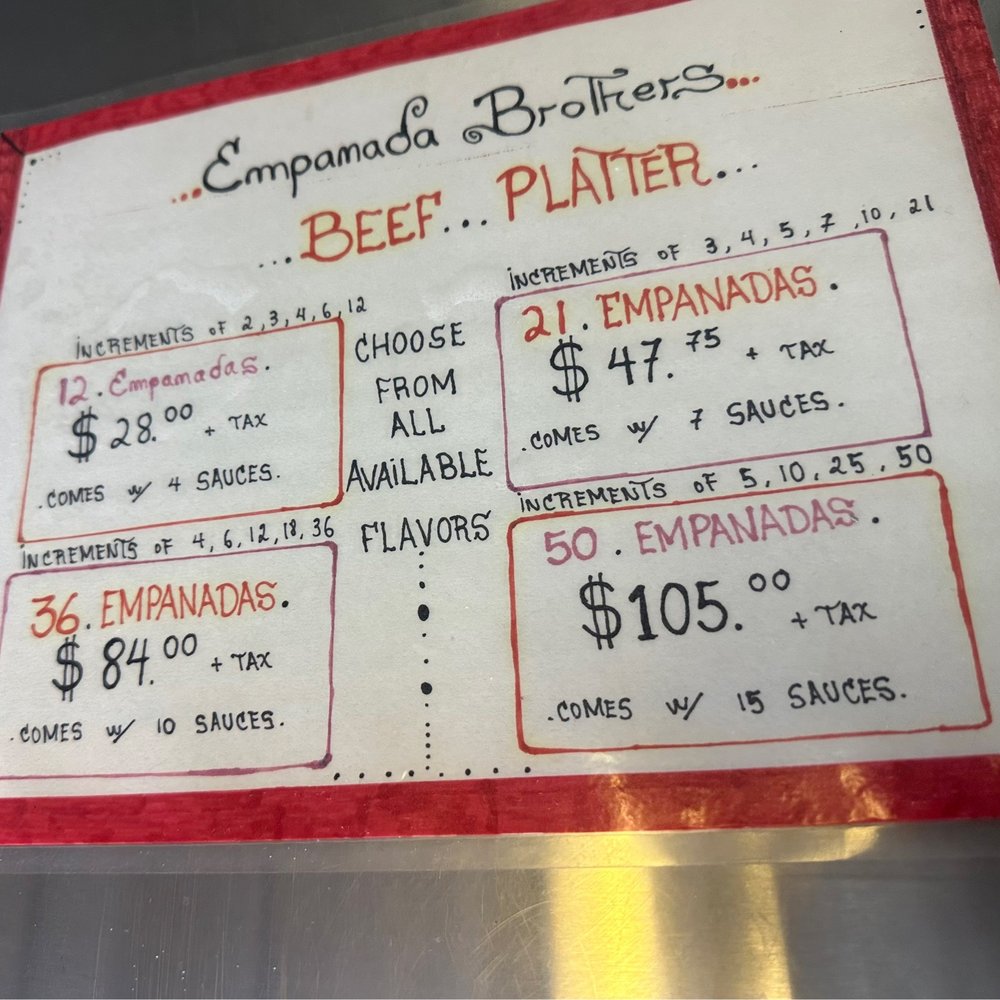 ...Empanada Brothers...
...BEEF... PLATTER...
INCREMENTS OF 2, 3, 4, 6, 12
12. Empanadas.
$28.00 + TAX
.COMES w/ 4 SAUCES.
INCREMENTS OF 4, 6, 12, 18, 36
36. EMPANADAS.
$84.00 + TAX
.COMES w/ 10 SAUCES.
CHOOSE
FROM
ALL
AVAILABLE
FLAVORS
INCREMENTS OF 3, 4, 5, 7, 10, 21
21. EMPANADAS.
$47.75 + TAX
.COMES w/ 7 SAUCES.
INCREMENTS OF 5, 10, 25, 50
50. EMPANADAS.
$105.00 + TAX
.COMES w/ 15 SAUCES.